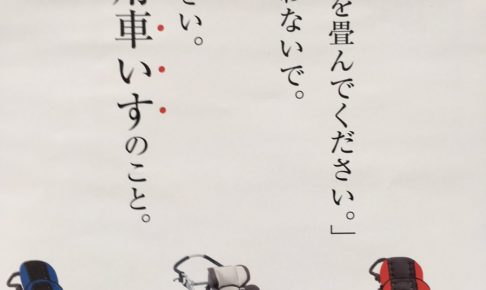 を畳んでください。」
ないで。
さい。
車いすのこと。